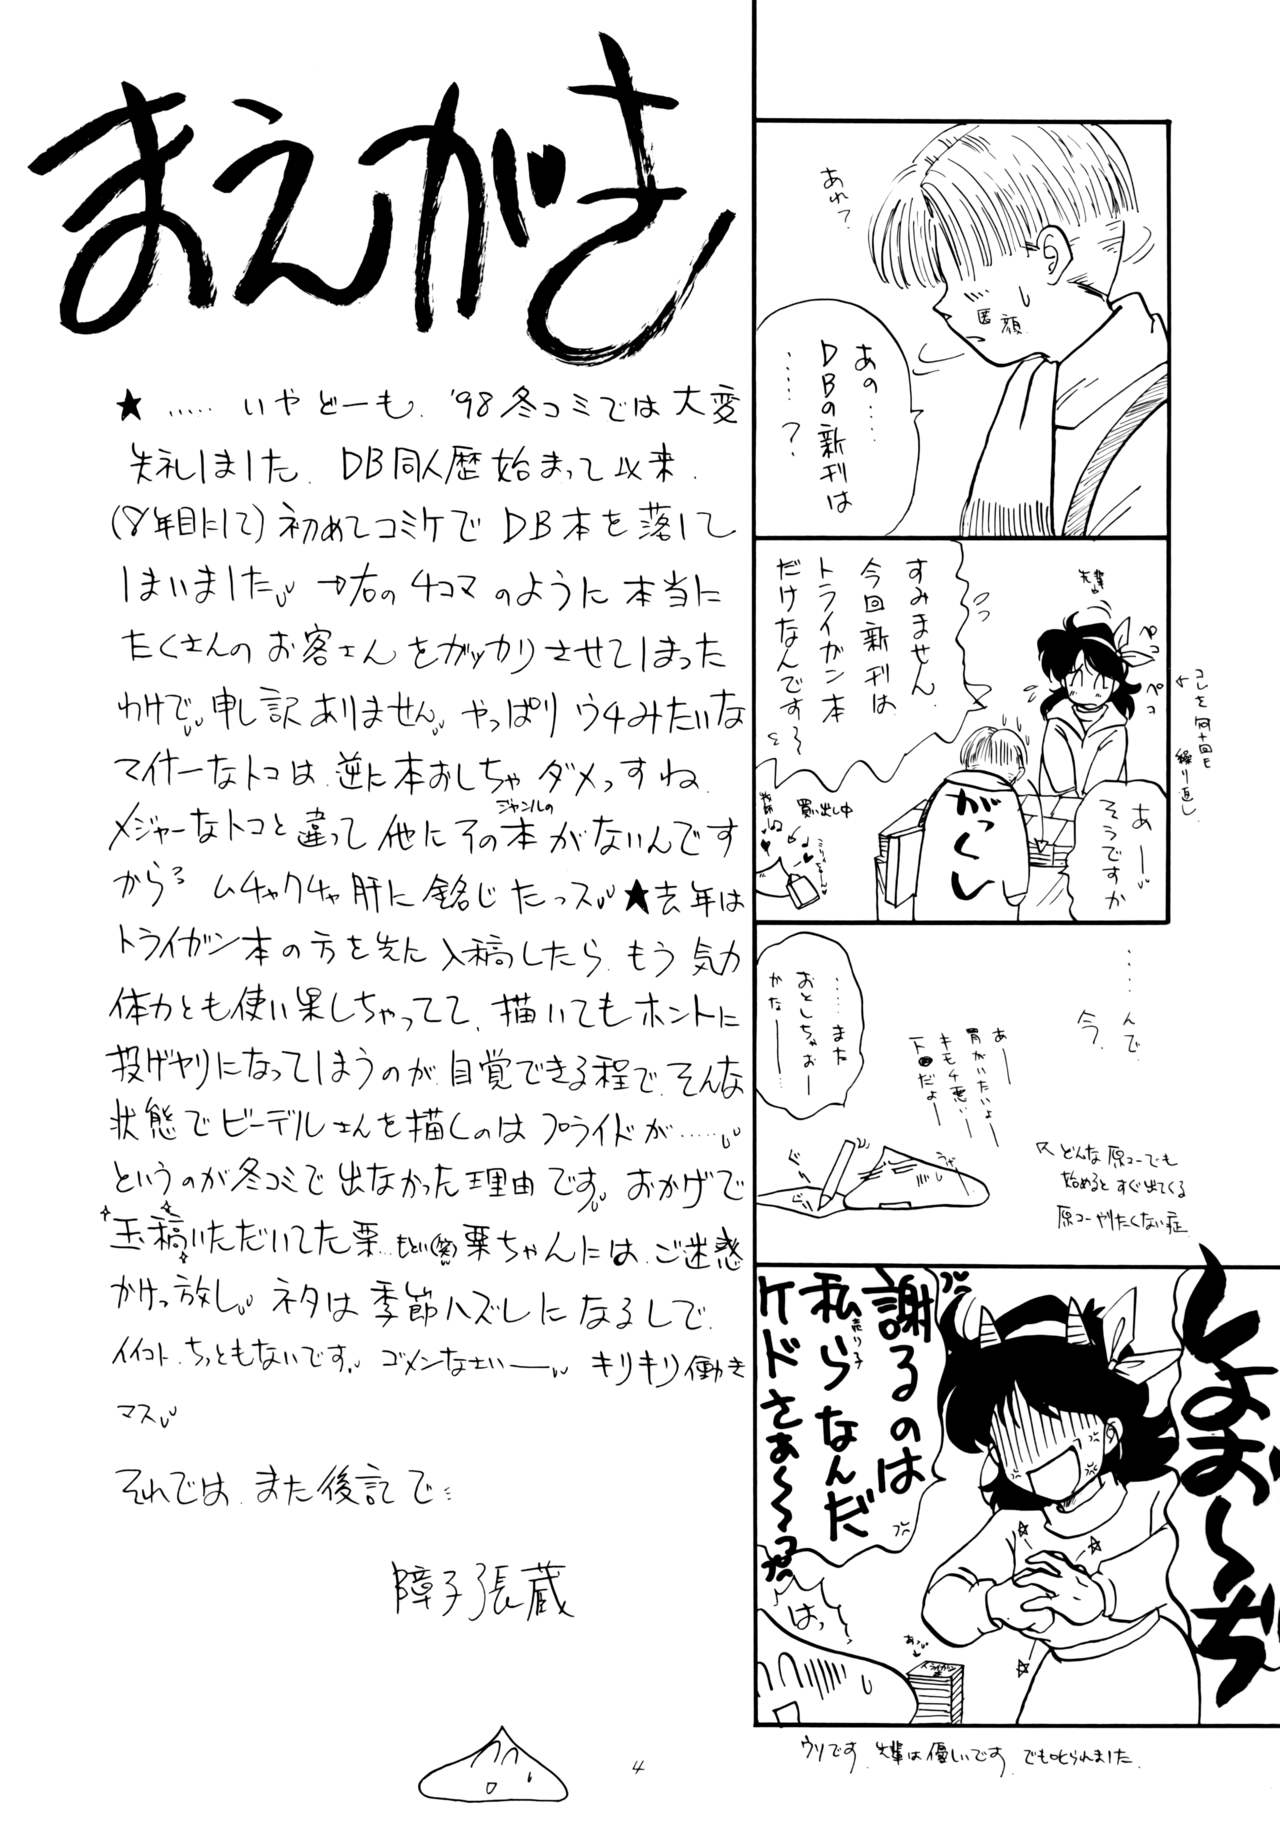 まえがき
★……いやどーも、'98冬コミでは大変
失礼しました。DB同人歴始まって以来、
(8年目にして)初めてコミケでDB本を落して
しまいました。→右の4コマのように本当に
たくさんのお客さんをガッカリさせてしまった
わけで、申し訳ありません。やっぱりウチみたいな
マイナーなトコは、逆に本おしちゃダメっすね。
メジャーなトコと違って他にそのジャンルの本がないんです
から。ムチャクチャ肝に銘じたっス。★去年は
トライガン本の方を先に入稿したら、もう気力
体力とも使い果しちゃってて、描いてもホントに
投げヤリになってしまうのが自覚できる程で、そんな
状態でビーデルさんを描くのはプライドが……。
というのが冬コミで出なかった理由です。おかげで
玉稿いただいてた栗…もとい(笑)栗ちゃんには、ご迷惑
かけっ放し。ネタは季節ハズレになるしで、
イイコト、ちっともないです。ゴメンなさいー。キリキリ働き
マス。
それでは、また後記で…
障子張蔵
4
あれ?
あの……
DBの新刊は
……?
すみません
今回新刊は
トライガン本
だけなんです〜
先輩
ペコ
ペコ
コレを何十回も
繰り返し
あー
そうですか
がっくし
買い出し中
……んで、
今、
……また
おとしちゃおー
かなー
あー
胃がいたいよー
キモチ悪いー
だよー
どんな原コーでも
始めるとすぐ出てくる
原コーやりたくない症
しょお〜ぢ
謝るのは
私ら売り子なんだ
ケドさぁ〜っ
はっ
トライガン
ウソです 先輩は優しいです でも叱られました